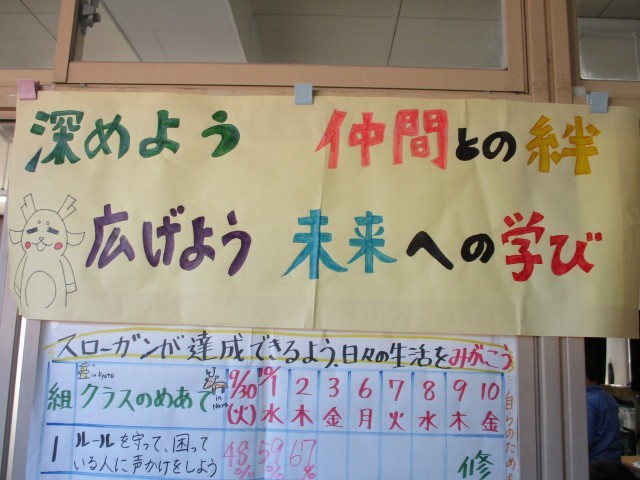 深めよう 仲間との絆
広げよう 未来への学び
スローガンが達成できるよう、日々の生活をみがこう
組 クラスのめあて in Kyoto in Nara 9/30(火) 10/1水 2木 3金 6月 7火 8水 9木 10金
1 ルールを守って、困って
いる人に声かけをしよう 48% 59% 67% 修
自らのため